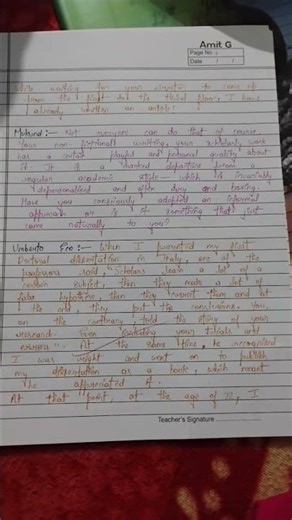 Amit G
Page No.
Date / /
While waiting for your elevator to come up
from the first to the third floor, I have
already written an article!
Mukund :- Not everyone can do that of course.
Your non fictional writing, your scholarly work
has a certain playful and personal quality about
it. It is a marked departure from a
regular academic style - which is invariably
depersonalised and often dry and boring.
Have you consciously adopted an informal
approach or is it something that just
came naturally to you?
Umberto Eco :- When I presented my first
Doctoral dissertation in Italy, one of the
professors said, "Scholars learn a lot of a
certain subject, then they make a lot of
false hypotheses, then they correct them and at
the end, they put the conclusions. You
on the contrary, told the story of your
research. Even including your trials and
errors." At the same time, he recognised
I was right and went on to publish
my dissertation as a book, which meant
he appreciated it.
At that point, at the age of 22, I
Teacher's Signature